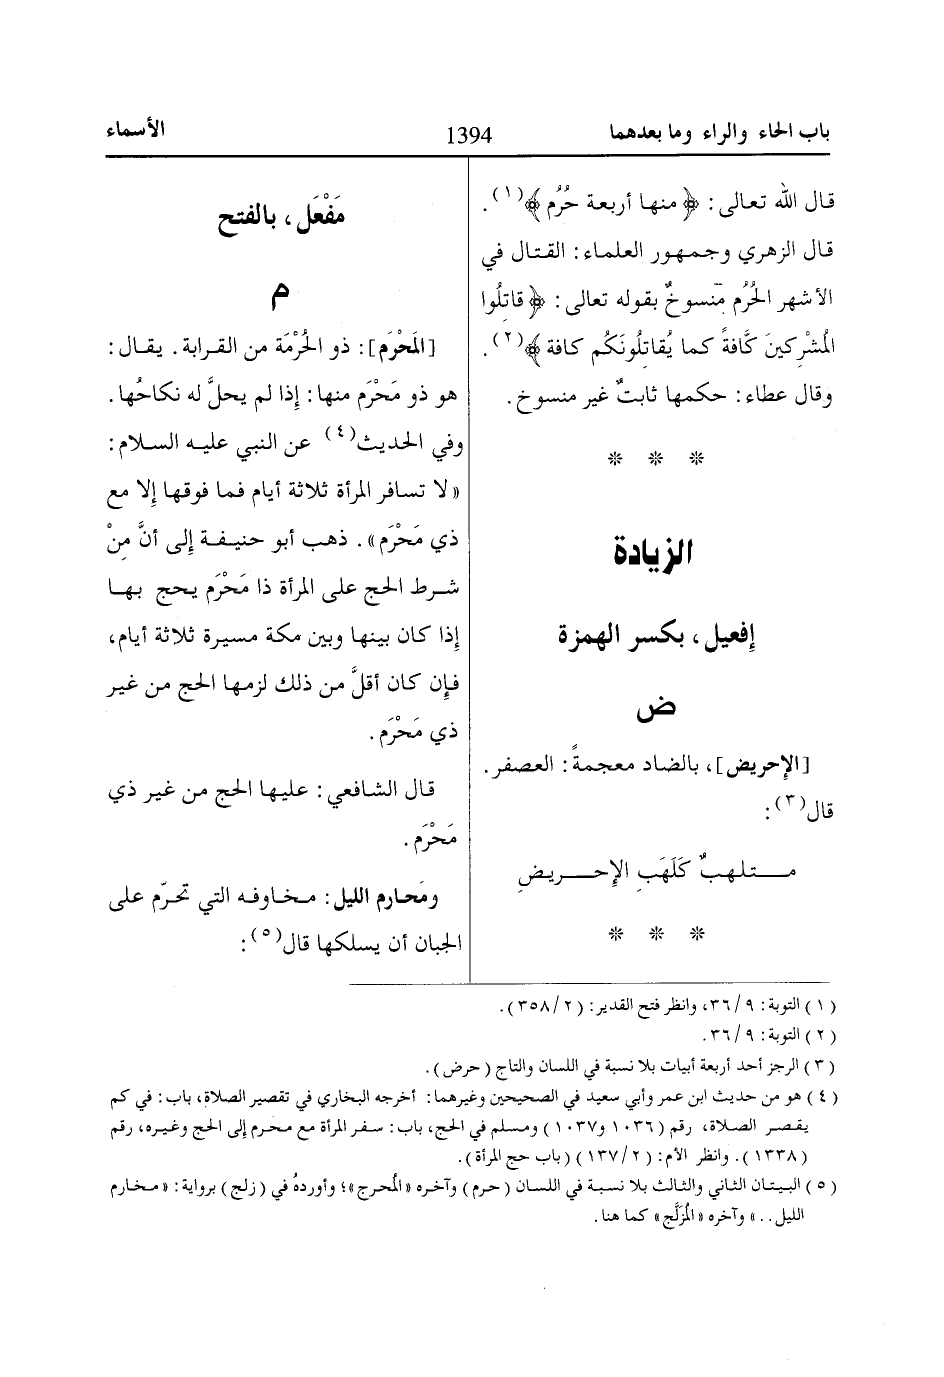 باب الحاء والراء وما بعدهما
1394
الأسماء
قال الله تعالى: ﴿ منها أربعة حُرُم ﴾(١).
قال الزهري وجمهور العلماء: القتال في
الأشهر الحُرُم منسوخٌ بقوله تعالى: ﴿ قاتلُوا
المُشركينَ كَافةً كما يُقاتلُونَكُم كافة ﴾(٢).
وقال عطاء: حكمها ثابتٌ غير منسوخ.
* * *
الزيادة
إفعيل، بكسر الهمزة
ض
[الإحريض]، بالضاد معجمةً: العصفر.
قال(٣):
مــتلهبٌ كَلَهَبِ الإحــريضِ
* * *
مَفْعَل، بالفتح
م
[المَحْرَم]: ذو الحُرْمَة من القرابة. يقال:
هو ذو مَحْرَم منها: إذا لم يحلَّ له نكاحُها.
وفي الحديث(٤) عن النبي عليه السلام:
« لا تسافر المرأة ثلاثة أيام فما فوقها إلا مع
ذي مَحْرَم». ذهب أبو حنيفة إلى أنَّ مِنْ
شرط الحج على المرأة ذا مَحْرَم يحج بها
إذا كان بينها وبين مكة مسيرة ثلاثة أيام،
فإن كان أقلَّ من ذلك لزمها الحج من غير
ذي مَحْرَم.
قال الشافعي: عليها الحج من غير ذي
مَحْرَم.
ومَحارم الليل: مخاوفه التي تحرّم على
الجبان أن يسلكها قال(٥):
(١) التوبة: ٩/ ٣٦، وانظر فتح القدير: (٢/ ٣٥٨).
(٢) التوبة: ٩/ ٣٦.
(٣) الرجز أحد أربعة أبيات بلا نسبة في اللسان والتاج (حرض).
(٤) هو من حديث ابن عمر وأبي سعيد في الصحيحين وغيرهما: أخرجه البخاري في تقصير الصلاة، باب: في كم
يقصر الصلاة، رقم (١٠٣٦ و١٠٣٧) ومسلم في الحج، باب: سفر المرأة مع محرم إلى الحج وغيره، رقم
(١٣٣٨). وانظر الأم: (٢/ ١٣٧) (باب حج المرأة).
(٥) البيتان الثاني والثالث بلا نسبة في اللسان (حرم) وآخره «المُحرج»؛ وأوردهُ في (زلج) برواية: «مخارم
الليل..» وآخره «المُزَلَّج» كما هنا.